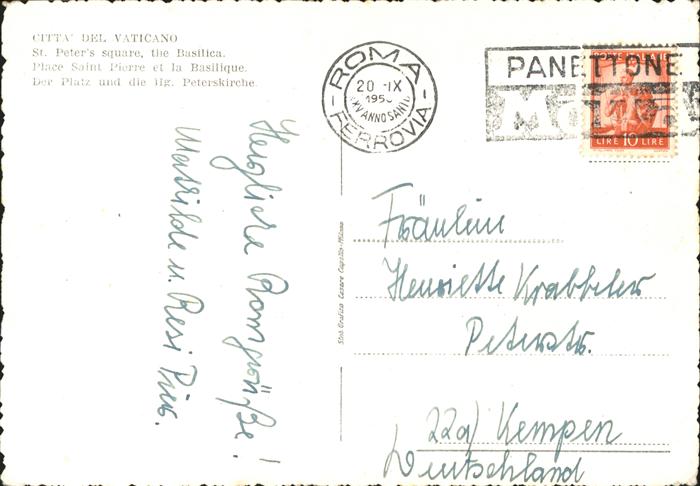 CITTA' DEL VATICANO
St. Peter's square, the Basilica.
Place Saint Pierre et la Basilique.
Der Platz und die Hg. Peterskirche.
Herzliche Romgrüße!
Mathilde u. Resi
ROMA
20 · IX
1950
XXV ANNO SANTO
FERROVIA
PANETTONE
MOTTA
LIRE 10 LIRE
Stab. Grafico Cesare Capello - Milano
Fräulein
Henriette Krabbeler
Peterstr.
22a) Kempen
Deutschland